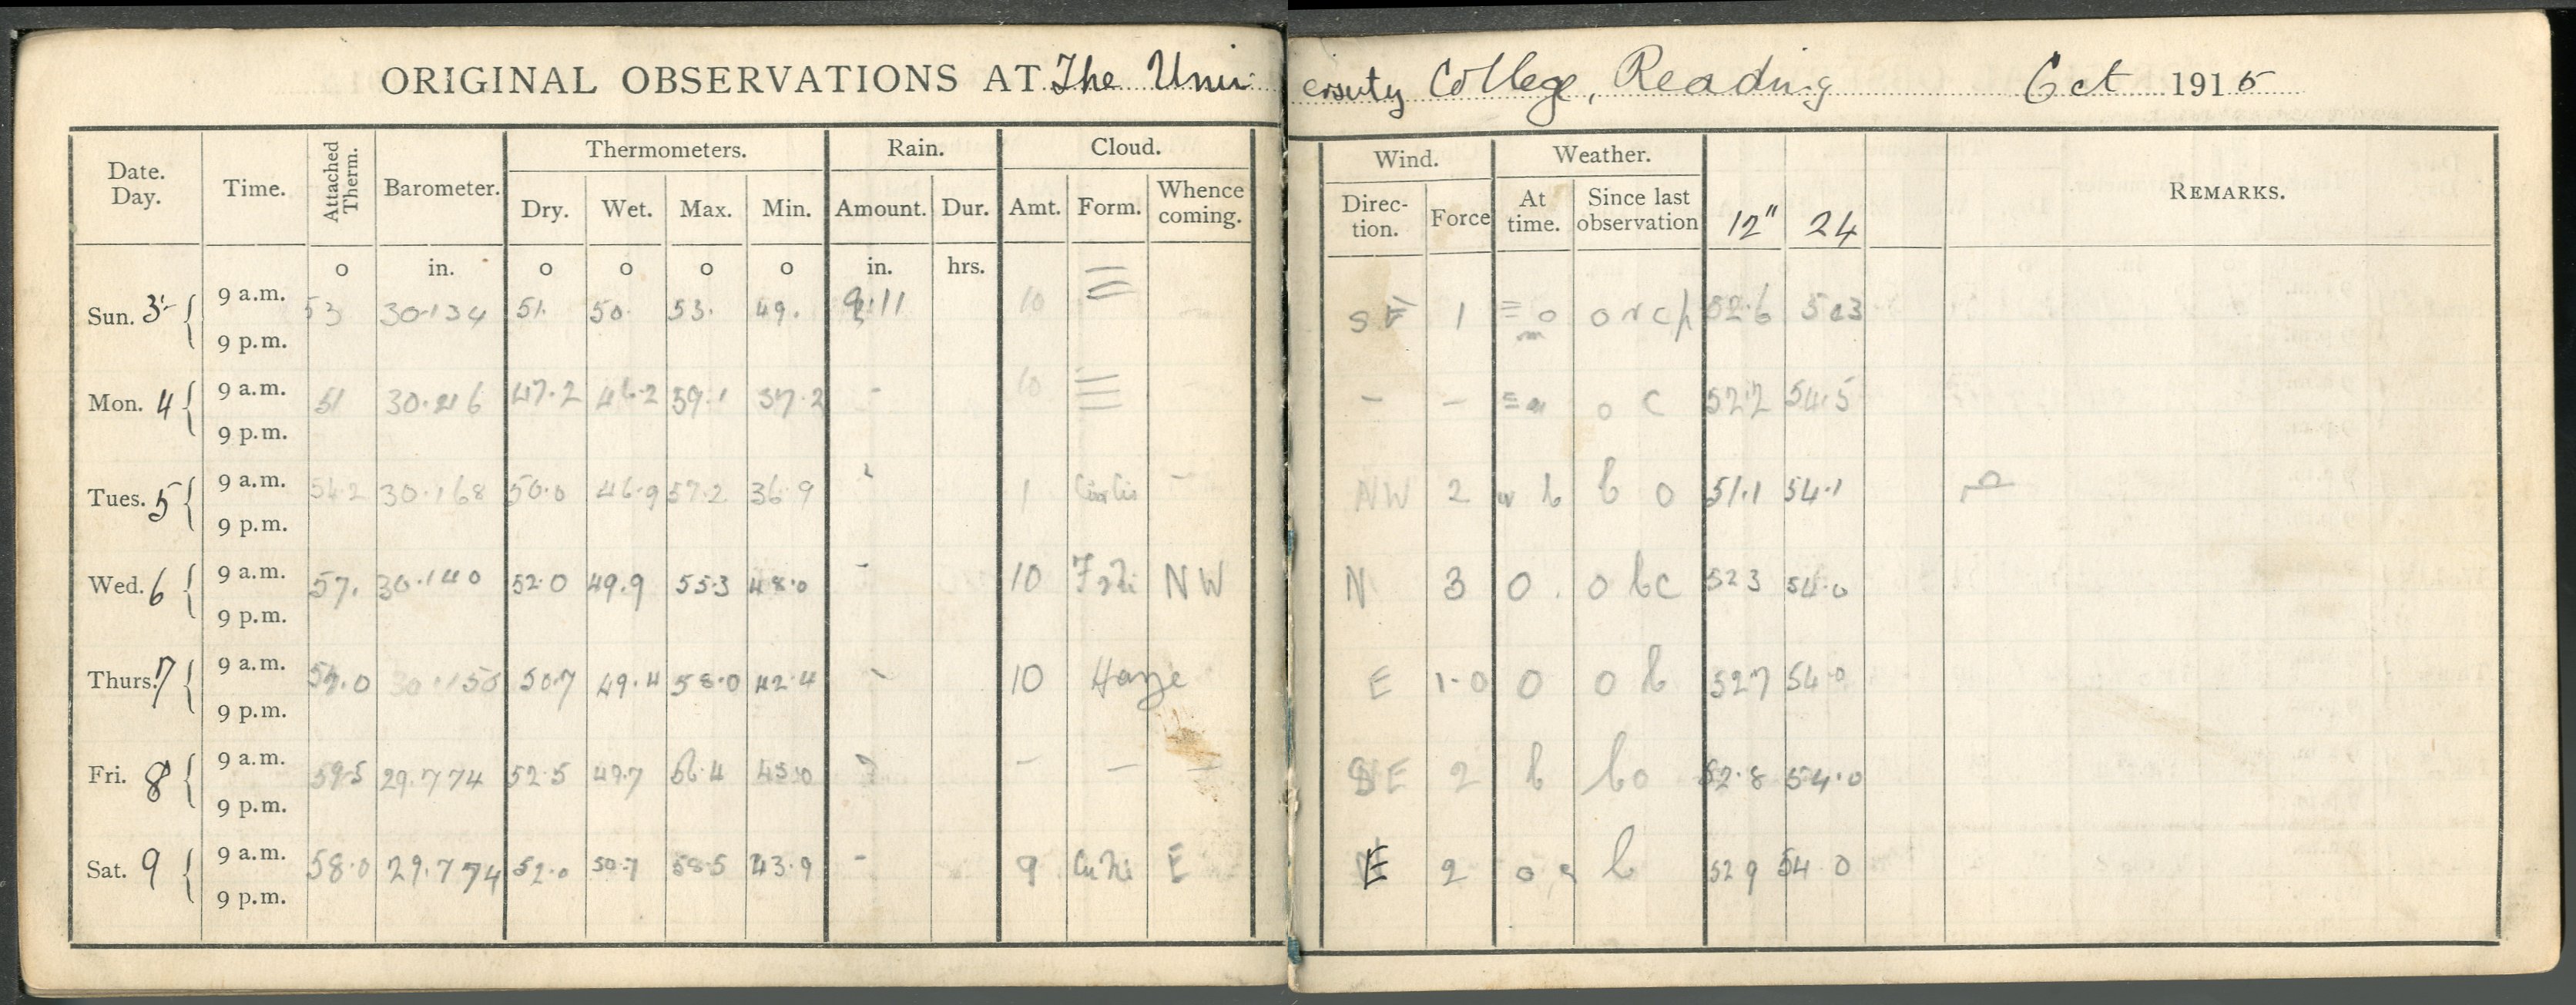 ORIGINAL OBSERVATIONS AT The University College, Reading Oct 1915
Date. Day. Time. Attached Therm. Barometer. Thermometers. Rain. Cloud. Wind. Weather. REMARKS.
Dry. Wet. Max. Min. Amount. Dur. Amt. Form. Whence coming. Direc- tion. Force At time. Since last observation 12" 24
o in. o o o o in. hrs.
Sun. 3 9 a.m. 53 30.134 51. 50. 53. 49. 10 SE 1 52.6
9 p.m.
Mon. 4 9 a.m. 51 30.216 47.2 46.2 59.1 37.2 - 10 - - o c 52.2 54.5
9 p.m.
Tues. 5 9 a.m. 54.2 30.168 50.0 46.9 57.2 36.9 1 - NW 2 w b b o 51.1 54.1
9 p.m.
Wed. 6 9 a.m. 57. 30.140 52.0 49.9 55.3 48.0 - 10 NW N 3 0. o bc 52 3 54.0
9 p.m.
Thurs. 7 9 a.m. 50.7 49.4 58.0 42.4 - 10 Haze E 1-0 0 o b 527 54.0
9 p.m.
Fri. 8 9 a.m. 59.5 29.774 52.5 49.7 56.4 - - - 2 b bo 52.8 54.0
9 p.m.
Sat. 9 9 a.m. 58.0 29.774 52.0 50.7 58.5 43.9 - 9 E E 2 b 52 9 54 0
9 p.m.